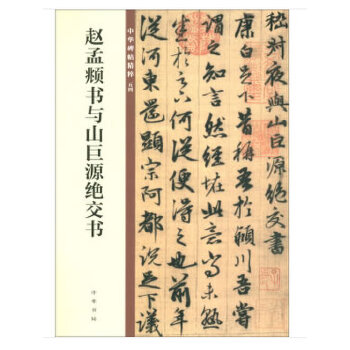 赵孟頫书与山巨源绝交书
中华碑帖精粹
中华书局
嵇叔夜與山巨源絶交書
康白足下昔稱吾於潁川吾嘗
謂之知言然經怪此意尚未熟
於足下何從便得之也前年
從河東還顯宗阿都說足下議